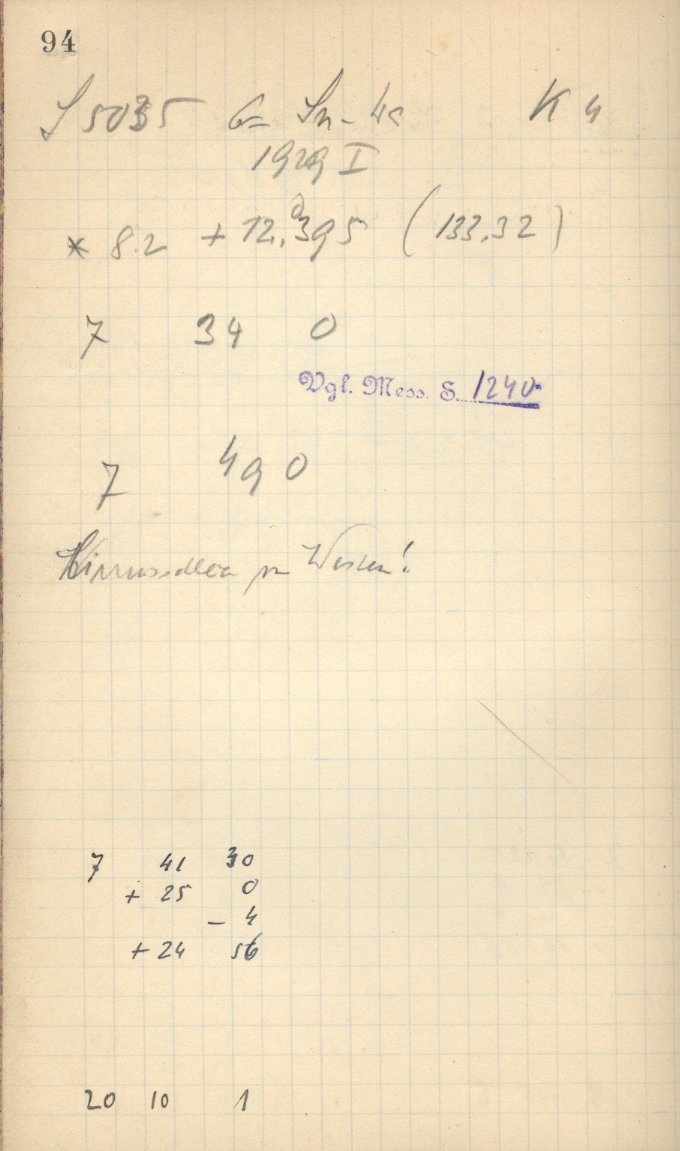 94
S 5035 G= K 4
1929 I
* 8.2 + 12,°395 (133,32)
7 34 0
Vgl. Mess. S. 1240
7 49 0
im Westen!
7 41 30
+ 25 0
- 4
+ 24 56
20 10 1